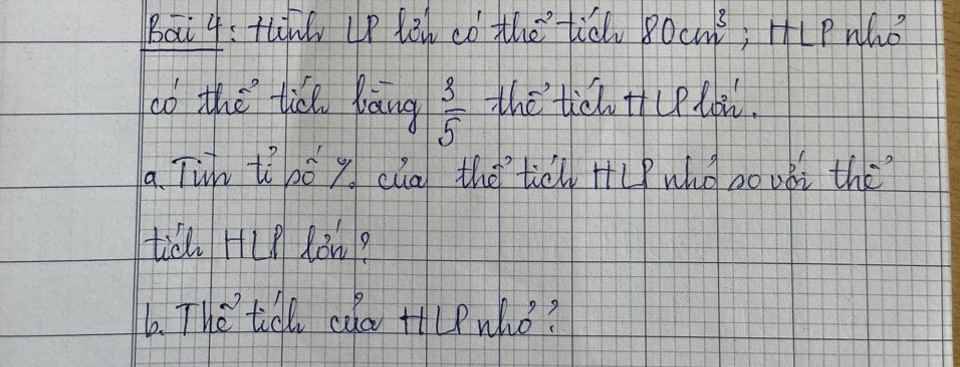 Bài 4: Hình LP lớn có thể tích 80cm³; HLP nhỏ
có thể tích bằng 3/5 thể tích HLP lớn.
a. Tìm tỉ số % của thể tích HLP nhỏ so với thể
tích HLP lớn?
b. Thể tích của HLP nhỏ?